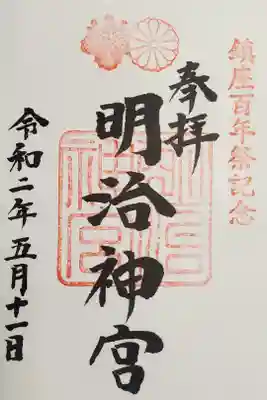 鎮座百年祭記念
奉拝
明治神宮
令和二年五月十一日